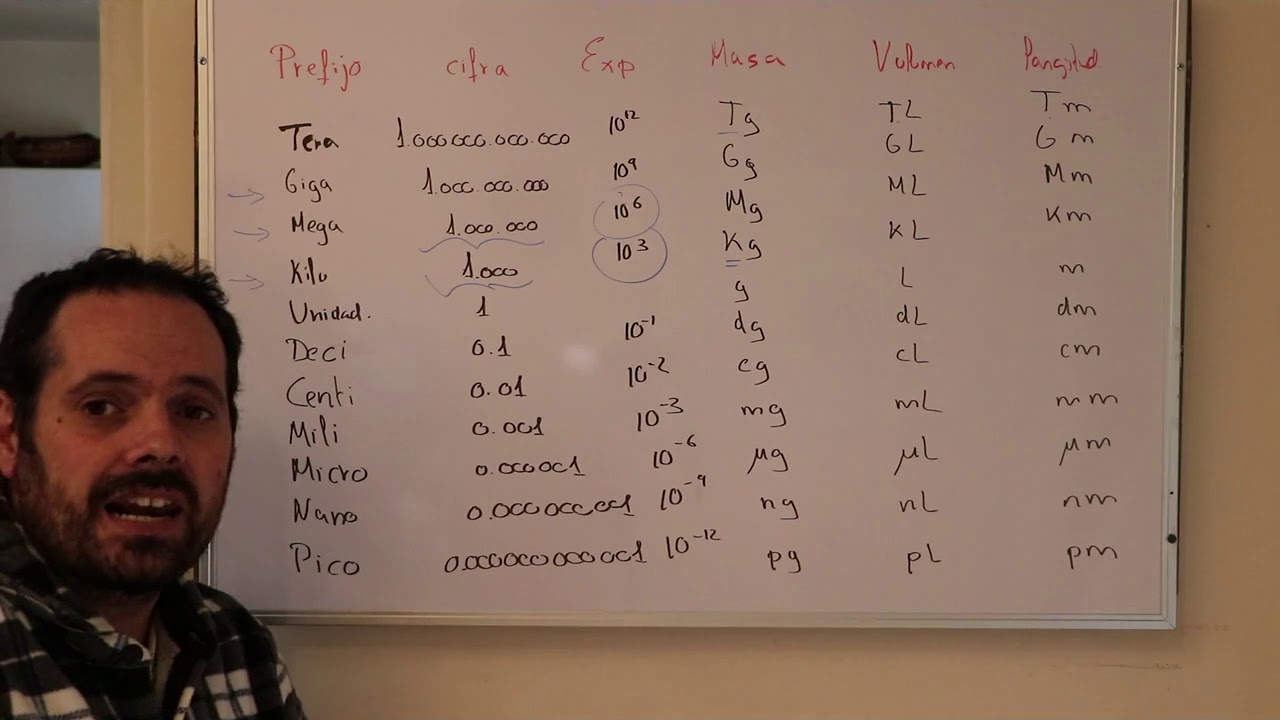 Prefijo cifra Exp Masa Volumen Longitud
Tera 1.000.000.000.000 10¹² Tg TL Tm
Giga 1.000.000.000 10⁹ Gg GL Gm
Mega 1.000.000 10⁶ Mg ML Mm
Kilo 1.000 10³ Kg kL Km
Unidad. 1 g L m
Deci 0.1 10⁻¹ dg dL dm
Centi 0.01 10⁻² cg cL cm
Mili 0.001 10⁻³ mg mL mm
Micro 0.000001 10⁻⁶ μg μL μm
Nano 0.000000001 10⁻⁹ ng nL nm
Pico 0.000000000001 10⁻¹² pg pL pm